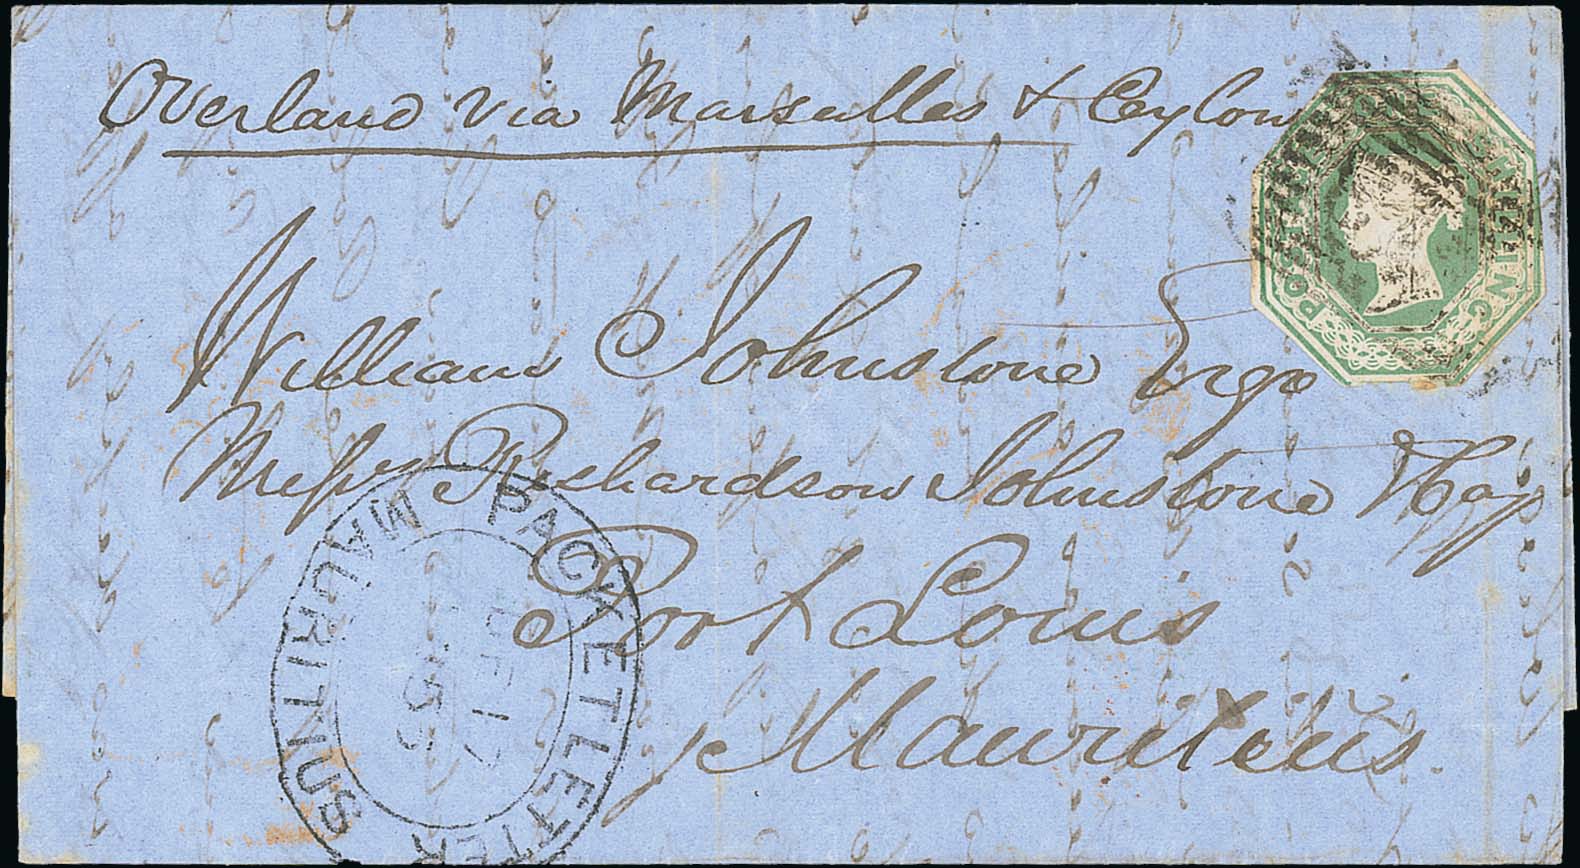 Overland via Marseilles & Ceylon
POSTAGE ONE SHILLING
William Johnstone Esqe
Messrs Richardson Johnstone &
Port Louis
Mauritius
PACKET LETTER
MAURITIUS